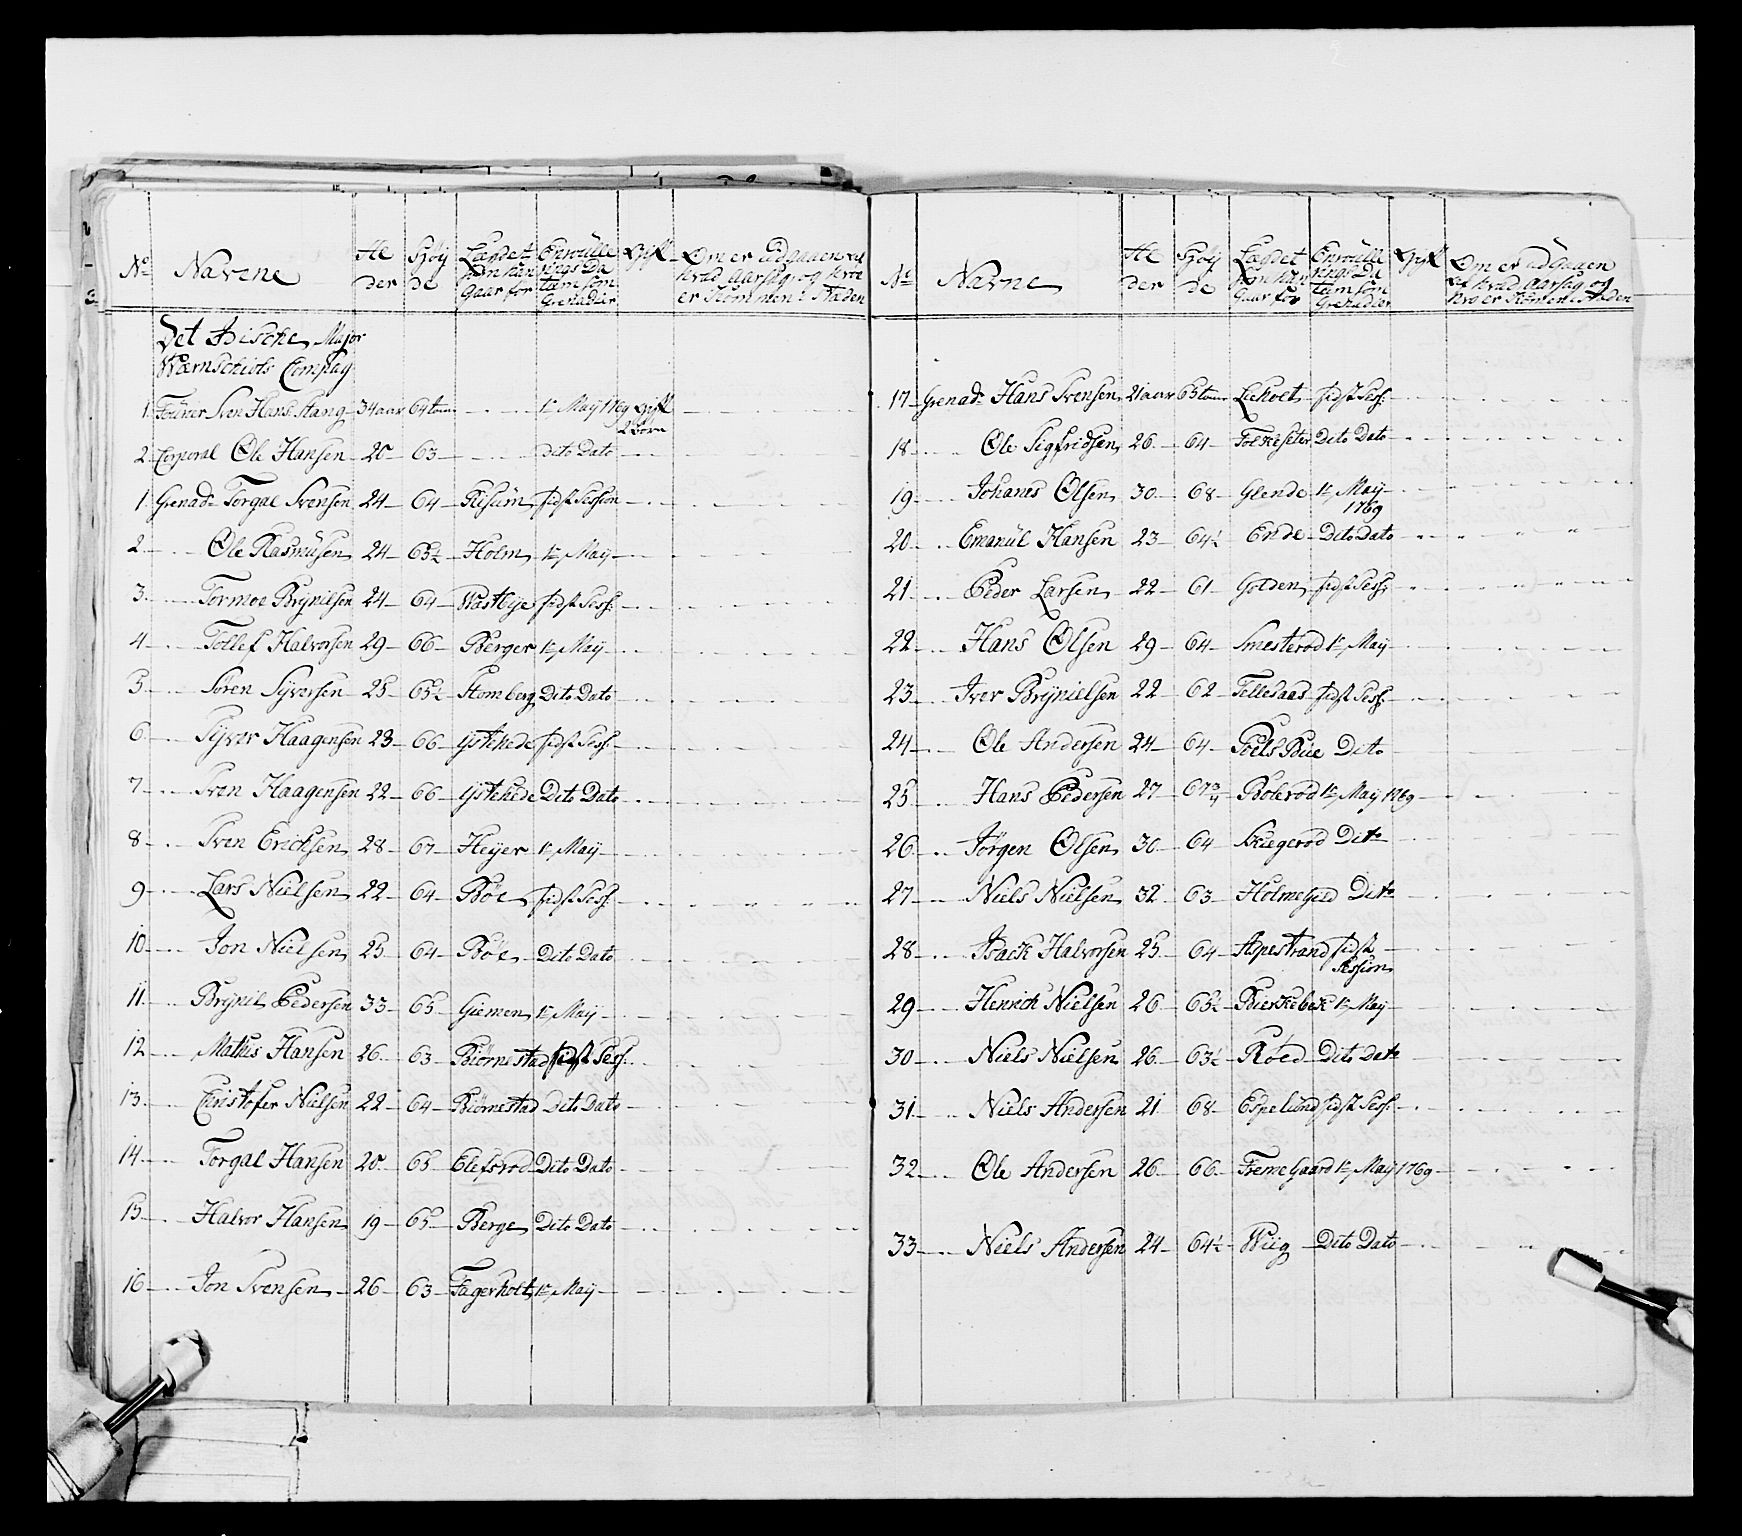 No Navne Al der Høy de Lægdet hvn han Gaar for Enroulle rings Da tum som Grenadier Gift Om er udgaaen ved hvad Aarsag, og hvo er kommen i Staden
Det Idiske Major
Wærnschiols Compag
1 Fourer Sven Hans. Stang 34 aar 64 tom 1te Maÿ 1769 Gift
2 børn
2 Corporal Ole Hansen 20 63 dito Dato
1 Grenad Torgal Svensen 24 64 Risum sidst Session
2 Ole Rasmusen 24 65½ Holm 1te Maÿ
3 Tormoe Brynilsen 24 64 Wastbye sidst Sess:
4 Tollef Halvorsen 29 66 Berger 1te Maÿ
5 Søren Syversen 25 65½ Stomberg Dito Dato
6 Syver Haagensen 23 66 Ystehede sidst Sess:
7 Sven Haagensen 22 66 Ystehede Dito Dato
8 Sven Ericksen 28 67 Heyer 1te Maÿ
9 Lars Nielsen 22 64 Bøe sidst Sess:
10 Jon Nielsen 25 64 Bøe Dito Dato
11 Brynil Pedersen 33 65 Giemen 1te Maÿ
12 Mathis Hansen 26 63 Biörnestad sidst Sess:
13 Christofer Nielsen 22 64 Biörnestad Dito Dato
14 Torgal Hansen 20 65 Elefsrod Dito Dato
15 Halvor Hansen 19 65 Berge Dito Dato
16 Jon Svensen 26 63 Fagerholt 1te Maÿ
No Navne Al der Høy de Lægdet hvn han Gaar for Enroulle rings Da tum som Grenadier Gift Om er udgaaen ved hvad Aarsag og hvo er kommen i Staden
17 Grenad Hans Svensen 21 aar 65 tom Lieholt sidst Sess:
18 Ole Sigfridsen 26 64 Folkeseter Dito Dato
19 Johanes Olsen 30 68 Glende 1te Maÿ
1769
20 Emanül Hansen 23 64½ Ende Dito Dato
21 Peder Larsen 22 61 Golden sidst Sess:
22 Hans Olsen 29 64 Smesterod 1te Maÿ
23 Iver Brynielsen 22 62 Tellesaas sidst Sess:
24 Ole Andersen 24 64 Poels Bue Dito
25 Hans Pedersen 27 67¾ Bolerod 1te Maÿ 1769
26 Jörgen Olsen 30 64 Skiegerod Dito
27 Niels Nielsen 32 63 Holmegied Dito
28 Isack Halvorsen 25 64 Alpestrand sidst
Session
29 Henrick Nielsen 26 65½ Bierkebek 1te Maÿ
30 Niels Nielsen 26 63½ Röed Dito Dato
31 Niels Andersen 21 68 Espelund sidst Sess:
32 Ole Andersen 26 66 FremeGaard 1te Maÿ 1769
33 Niels Andersen 24 64½ Wiig Dito Dato